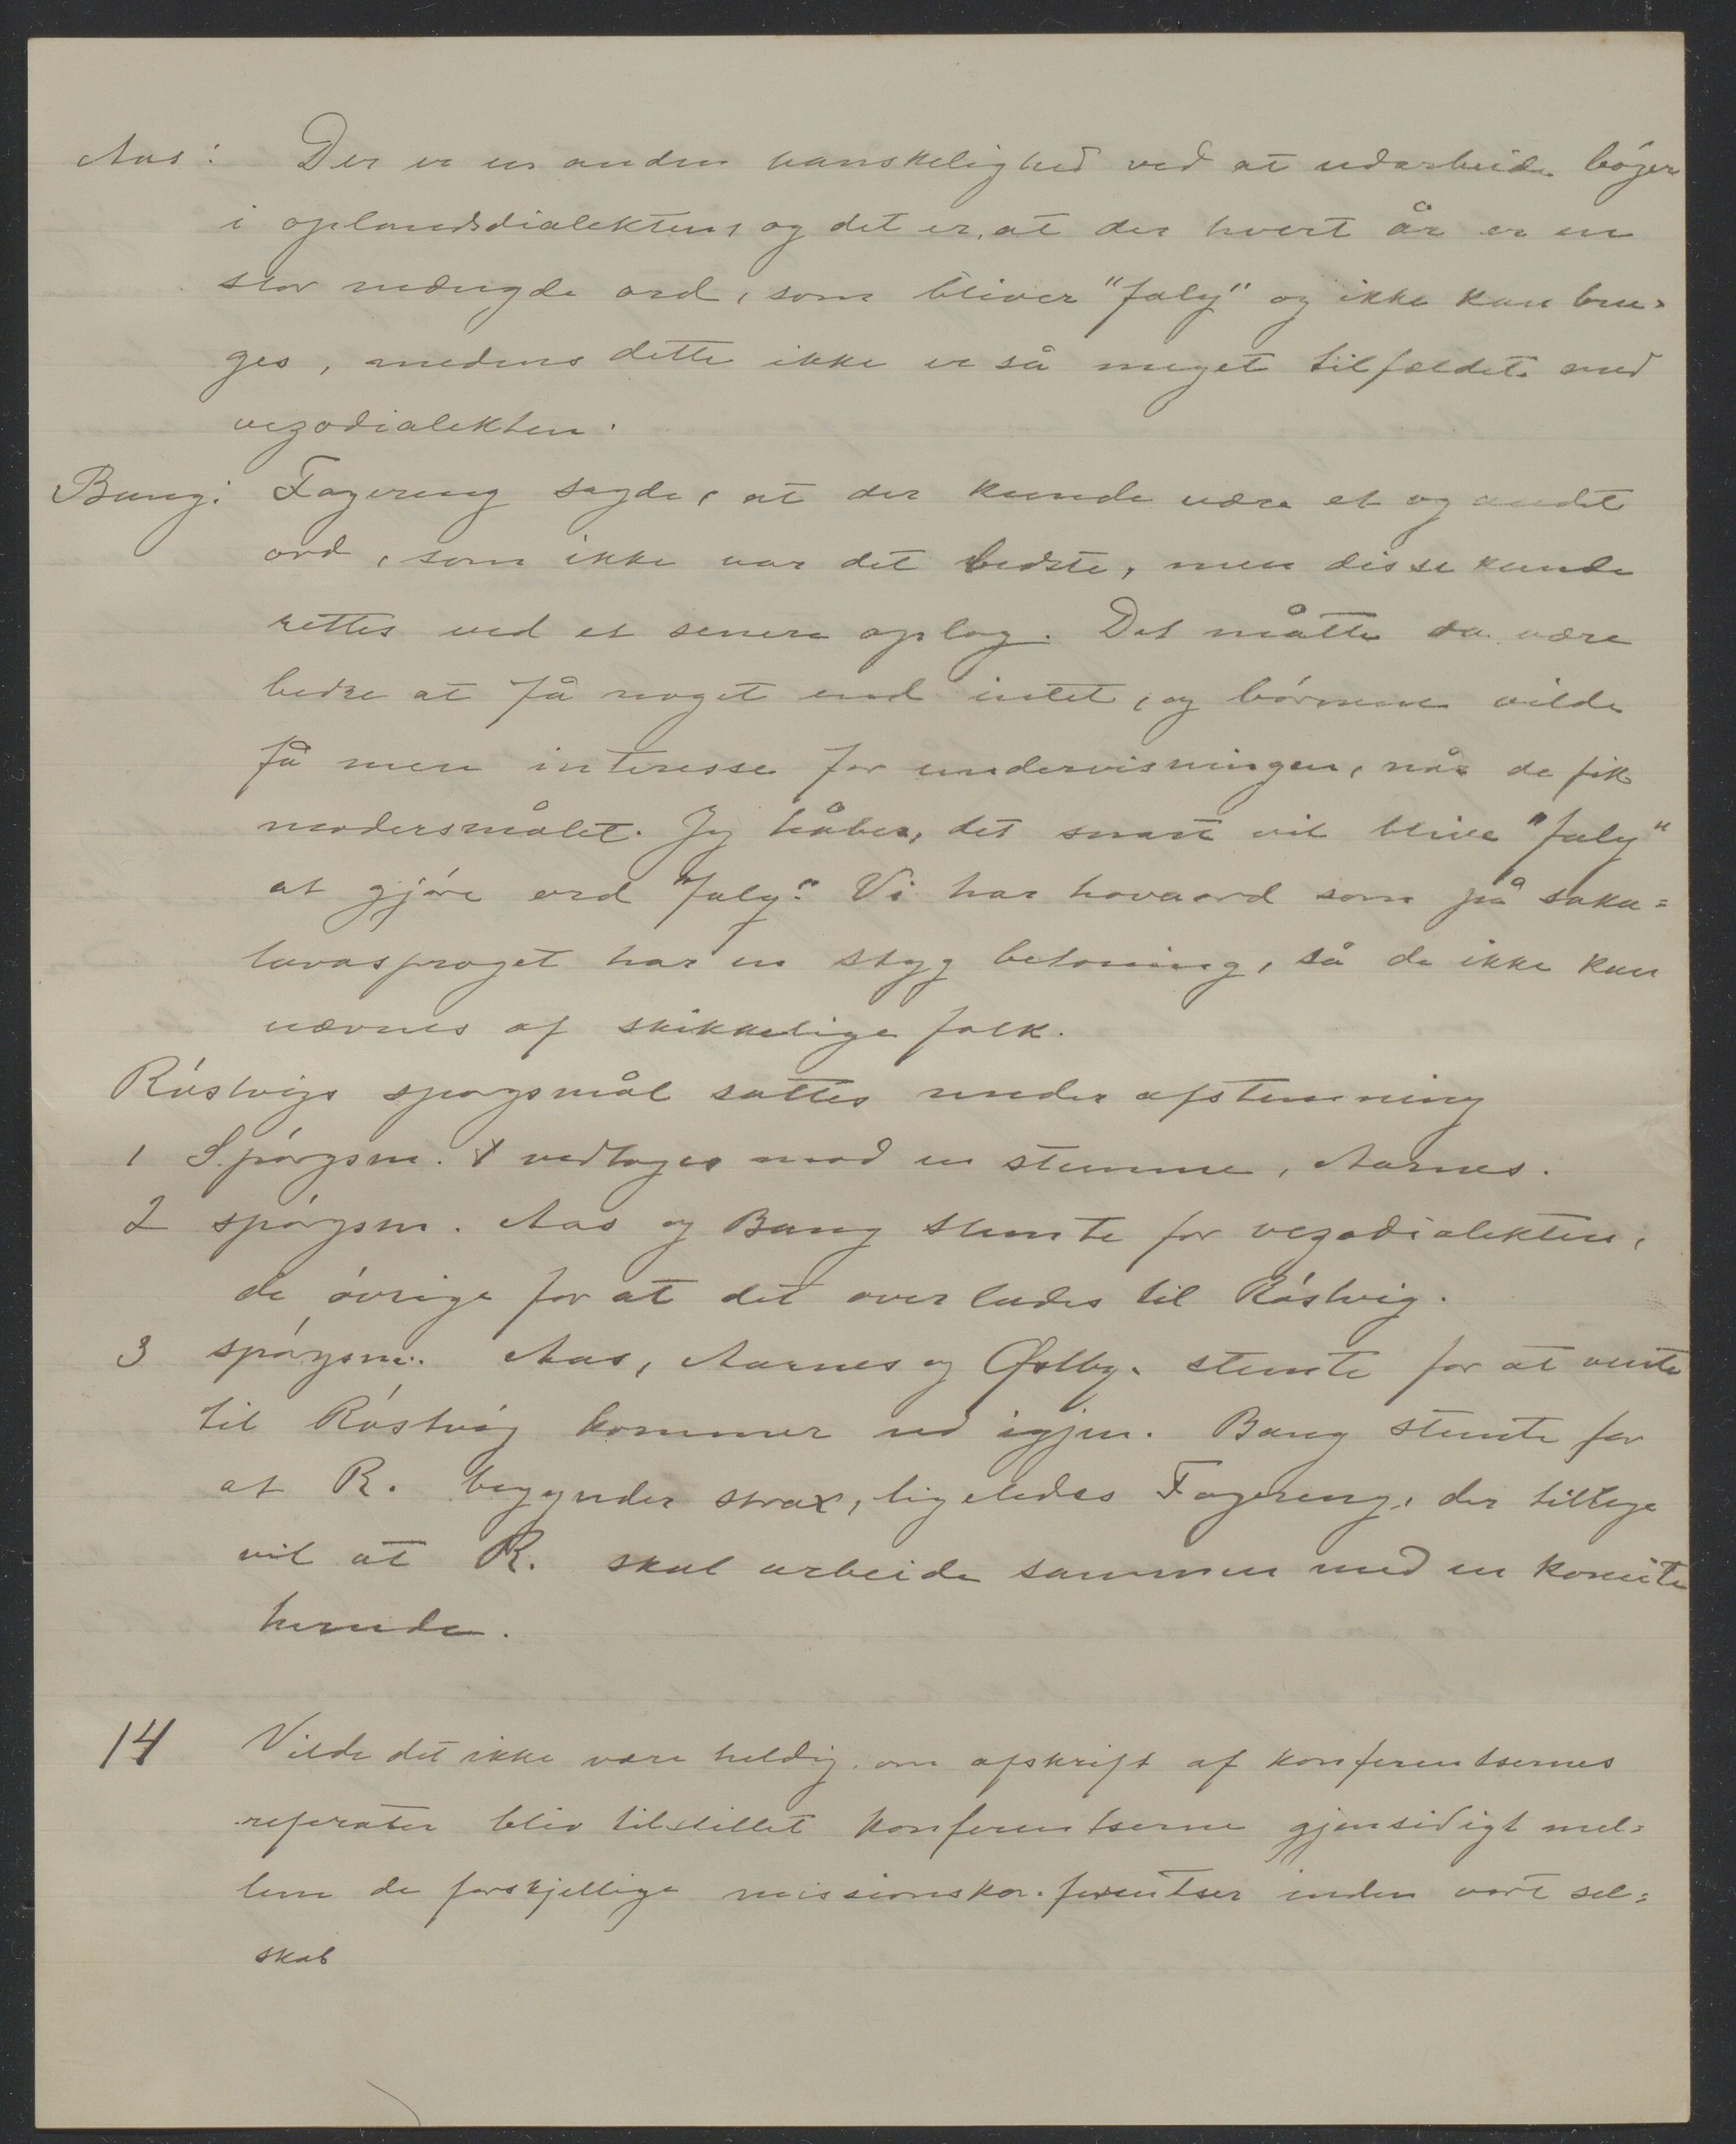 Aas: Der er en anden vanskelighed ved at udarbeide bøger
i oplandsdialekten, og det er, at der hvert år er en
stor mængde ord, som bliver "faly" og ikke kan bru-
ges, medens dette ikke er så meget tilfældet med
vezodialekten.
Bang: Fagereng sagde, at der kunde være et og andet
ord, som ikke var det bedste, men disse kunde
rettes ved et senere oplag. Det måtte da være
bedre at få noget end intet, og børnene vilde
få mere interesse for undervisningen, når de fik
modersmålet. Jeg håber, det snart vil blive "faly"
at gjøre ord "faly". Vi har hovaord som på saka=
lavasproget har en styg betoning, så de ikke kan
nævnes af skikkelige folk.
Røstvigs spørgsmål sattes under afstemning
1 Spørgsm. vedtoges mod en stemme, Aarnes.
2 spørgsm. Aas og Bang stemte for vezodialekten,
de øvrige for at det overlades til Røstvig.
3 spørgsm. Aas, Aarnes og Østby stemte for at vente
til Røstvig kommer ud igjen. Bang stemte for
at R. begynder strax, ligeledes Fagereng, der tillige
vil at R. skal arbeide sammen med en komite
herude.
14 Vilde det ikke være heldig om afskrift af konferentsernes
referater blev tilstillet konferentserne gjensidigt mel=
lem de forskjellige missionskonferentser inden vort sel=
skab